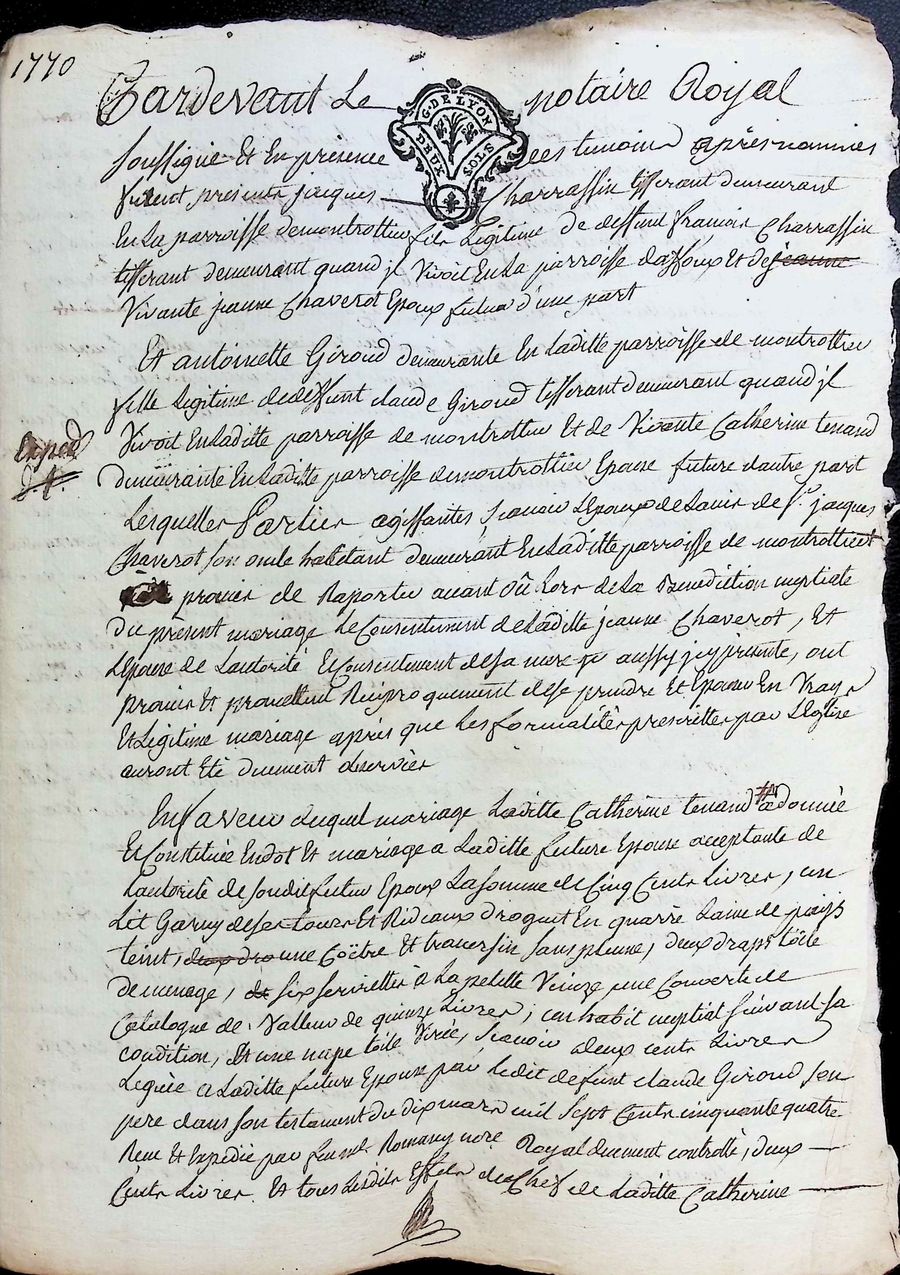 1770
Pardevant Le notaire Royal
G. DE LYON
DEUX SOLS
soussigné Et En presence des temoins après nommés
furent presents jacques Charrassin tisserant demeurant
En La parroisse demontrottier fils Legitime de deffunt francois Charrassin
tisserant demeurant quand jl Vivoit En La parroisse daffoux Et de jeanne
Vivante jeanne Chaverot Epoux futur d'une part
Et antoinette Giroud demeurante En Laditte parroisse de montrottier
fille Legitime dedeffunt claude Giroud tisserant demeurant quand jl
Vivoit EnLaditte parroisse de montrottier Et de Vivante Catherine tenand
demeurante EnLaditte parroisse demontrottier Epouse future dautre part
Exped
Lesquelles Parties agissantes scavoir LEpoux deLavis de Sr. jacques
Chaverot son oncle habitant demeurant EnLaditte parroisse de montrottier
promis de Raporter avant Où Lors de La Benediction nuptiale
du présent mariage Le Consentement deLaditte jeanne Chaverot, Et
LEpouse de Lautorité EtConsentement desa mere aussy jcy presente, ont
promis Et promettent Reciproquement dese prendre Et Epouser En Vray
EtLegitime mariage après que Les formalités prescrittes par LEglise
auront Eté duement observées
Enfaveur duquel mariage Laditte Catherine tenand a donnée
EtConstituée Endot Et mariage a Laditte future Epouse acceptante de
Lautorité de sondit futur Epoux La somme de Cinq Cents Livres, un
Lit Garny deses tours Et Rideaux droguet En quarré Laine de pays
teint, deux dra une Coëtre Et traversin sans plume, deux draps toile
de menage, six serviettes à La petitte Venize une Couverte de
Catalogne de Valleur de quinze Livres, un habit nuptial suivant sa
condition, Et une nape toile Virée, scavoir deux cents Livres
Leguée a Laditte future Epouse par Ledit defunt claude Giroud son
pere dans son testament du dix mars mil sept Cents cinquante quatre
Recu Et Expedié par feu Me. Romany nore Royal duement controllé, deux
Cents Livres Et tous Lesdits Effets du Chef de Laditte Catherine